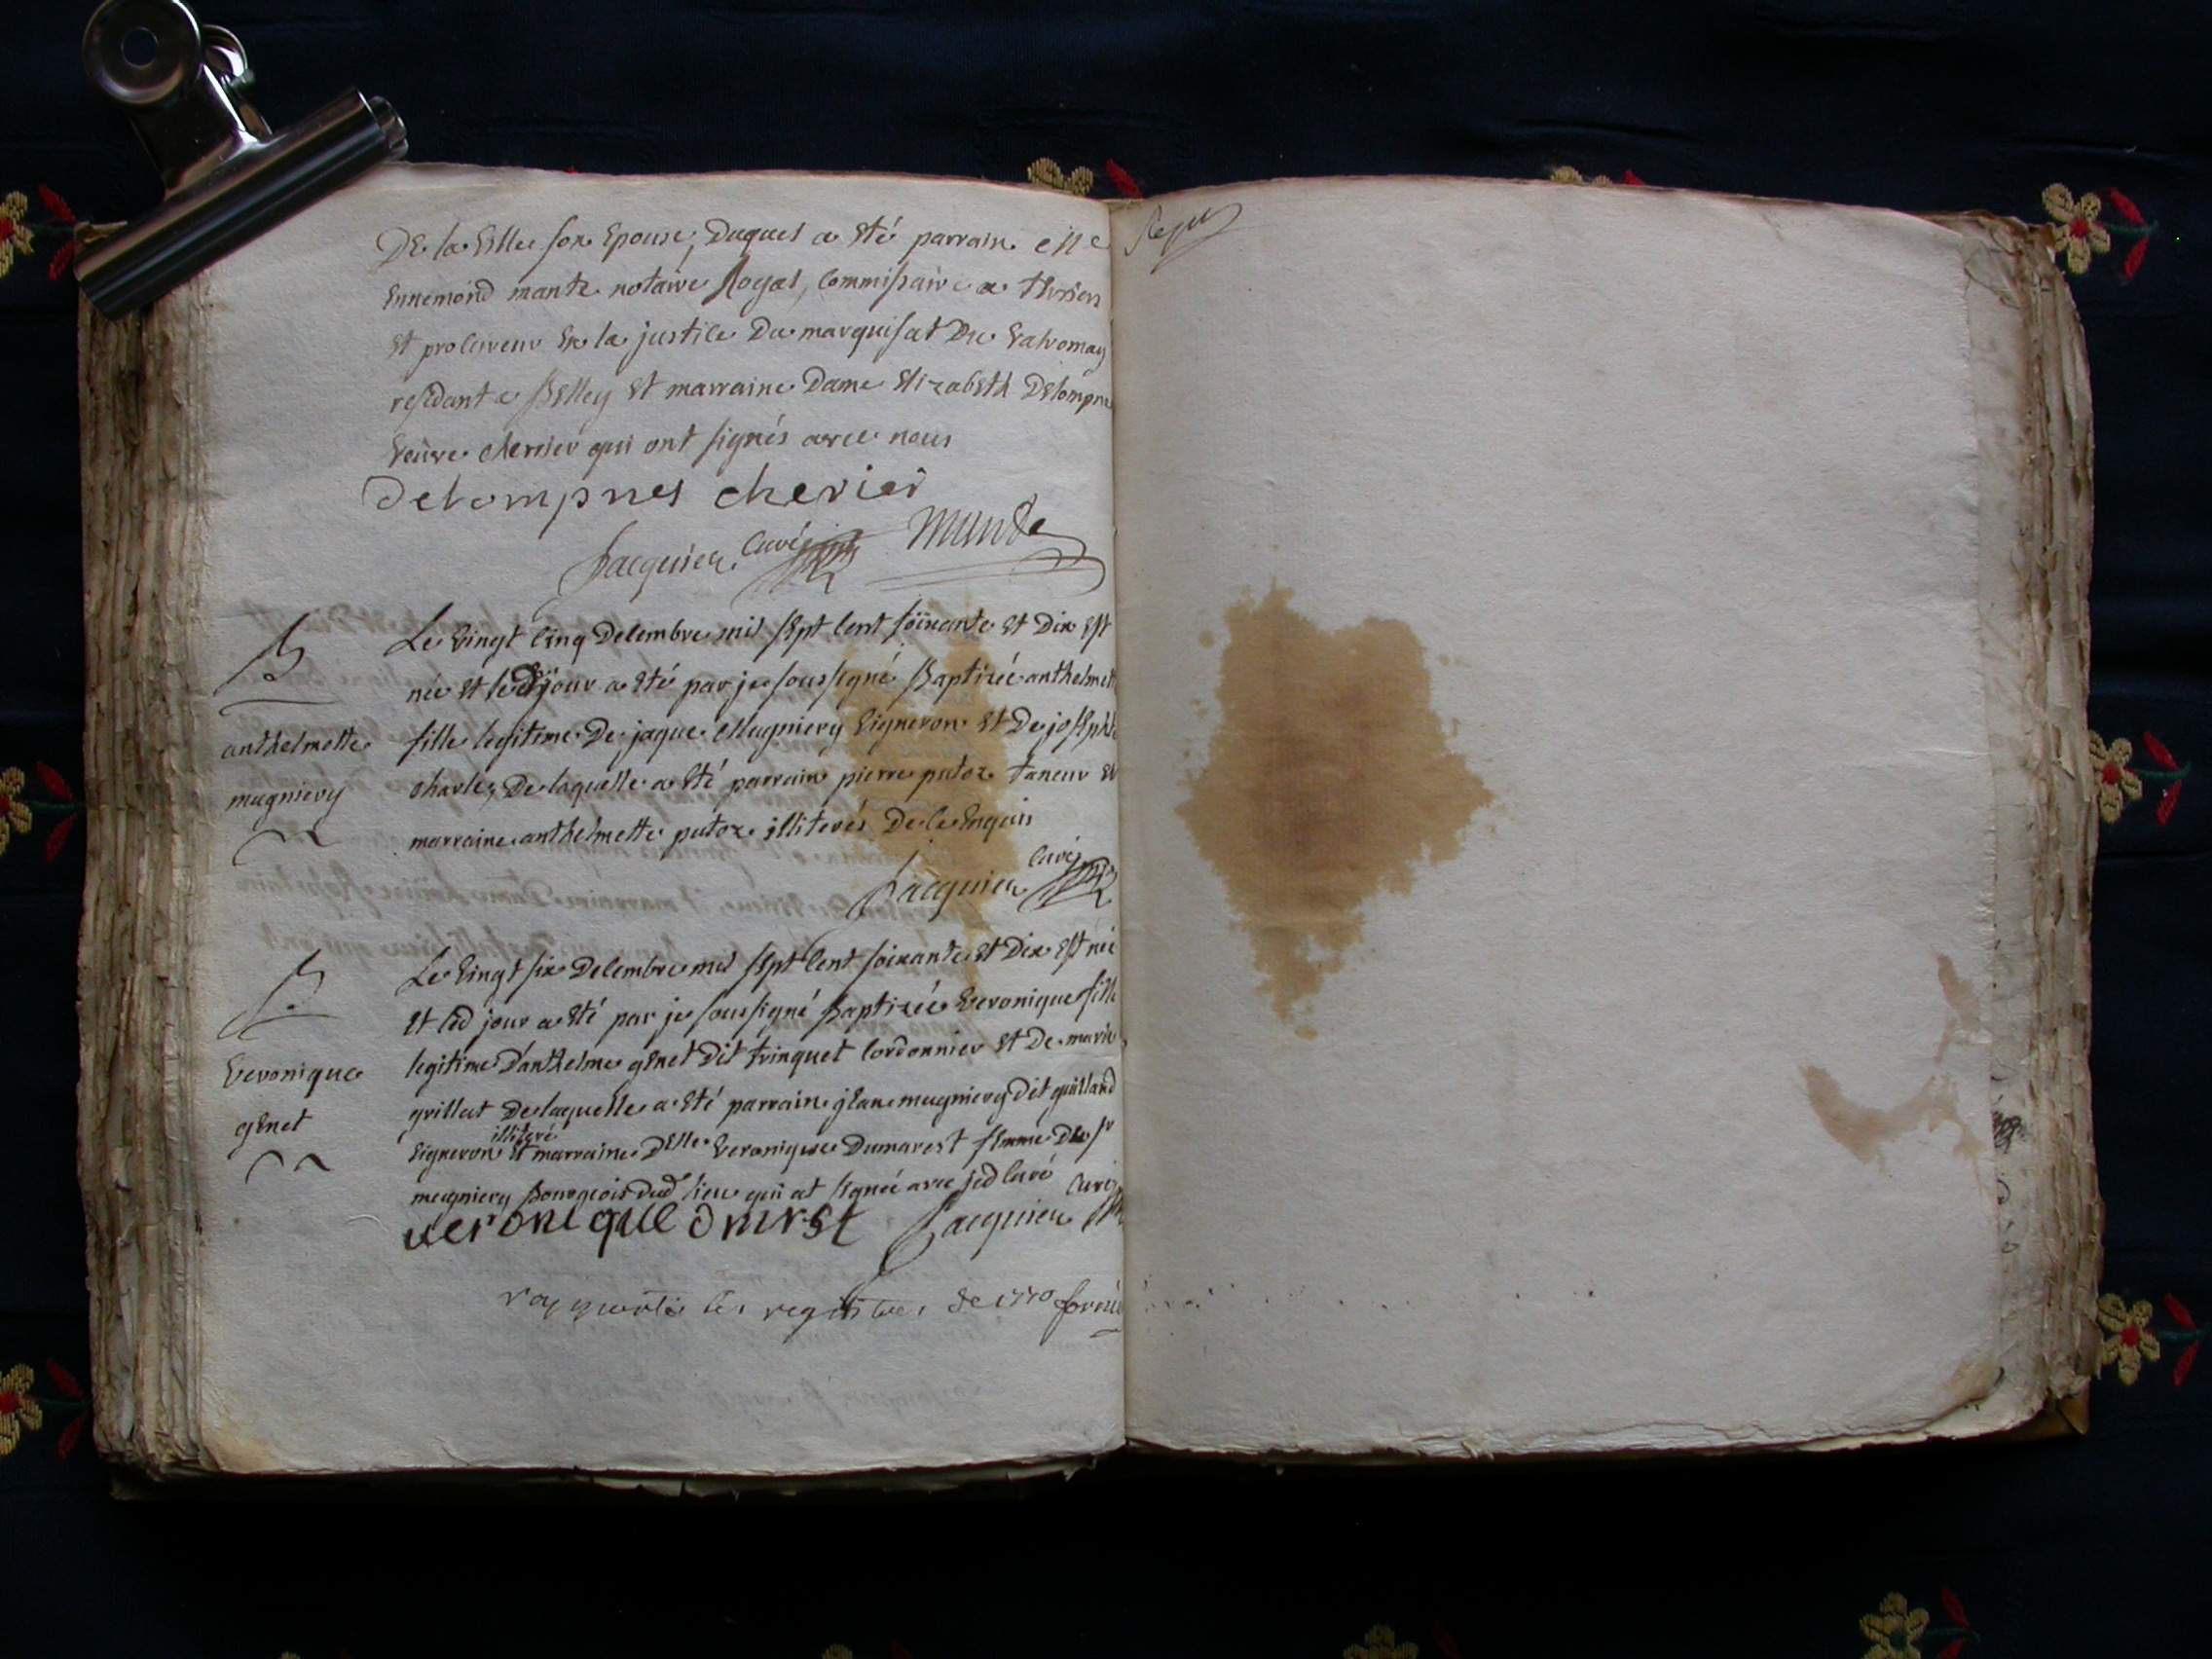 De la Ville son Epouse, Duquel a Eté parrain Me
Ennemond mante notaire Royal, Commissaire a terriers
Et procureur En la justice Du marquisat De Valromay
residant a Belley Et marraine Dame Elizabeth Delompne
veüve cherrier qui ont signés avec nous
Delompnes cherier
Jacquier Curé
Mante
B
anthelmette
mugniery
Le vingt cinq Decembre mil sept cent soixante Et Dix Est
née Et led jour a Eté par je soussigné Baptizée anthelmet
fille legitime De jaque Mugniery vigneron Et De josephte
charles, De laquelle a Eté parrain pierre putoz taneur Et
marraine anthelmette putoz illiterés De ce Enquis
Jacquier curé
B
Veronique
genet
Le vingt six Decembre mil sept cent soixante Et Dix Est née
Et led jour a Eté par je soussigné Baptizée Veronique fille
legitime D'anthelme genet Dit trinquet cordonnier Et De marie
grillat De laquelle a Eté parrain jean mugniery Dit guilland
vigneron illiteré Et marraine Delle Veronique Dumarest femme De sr
mugniery Bourgeois Dud lieu qui at signée avec jed curé
veronique dmrst Jacquier Curé
les registres de 1770